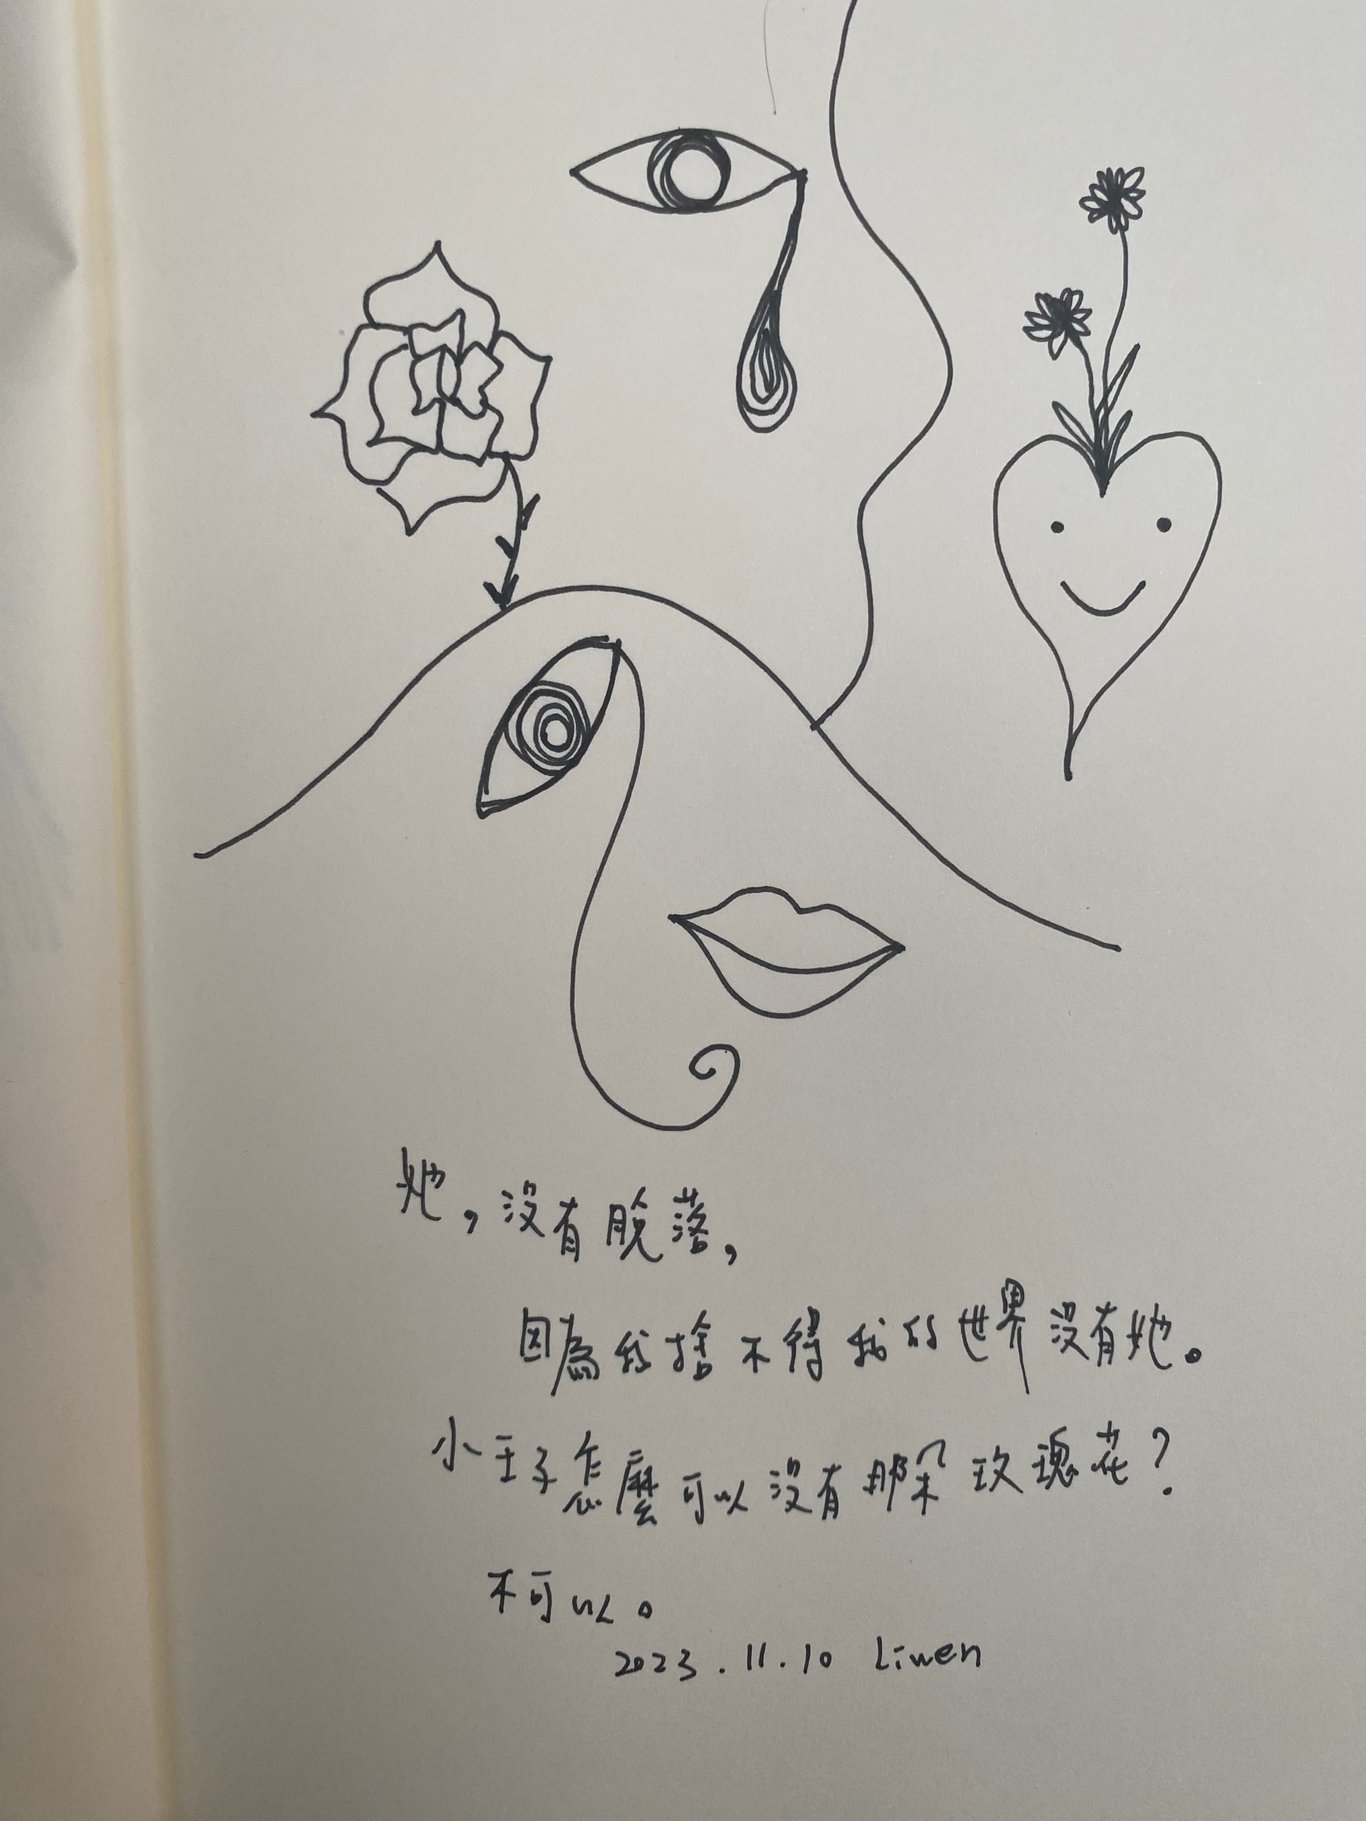 她，沒有脫落，
因為我捨不得我的世界沒有她。
小王子怎麼可以沒有那朵玫瑰花？
不可以。
2023.11.10 Liwen